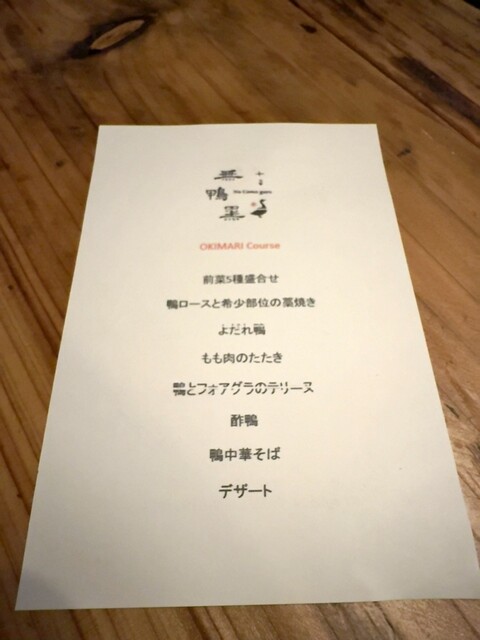 無
鴨
黒
OKIMARI Course
前菜5種盛合せ
鴨ロースと希少部位の藁焼き
よだれ鴨
もも肉のたたき
鴨とフォアグラのテリーヌ
酢鴨
鴨中華そば
デザート